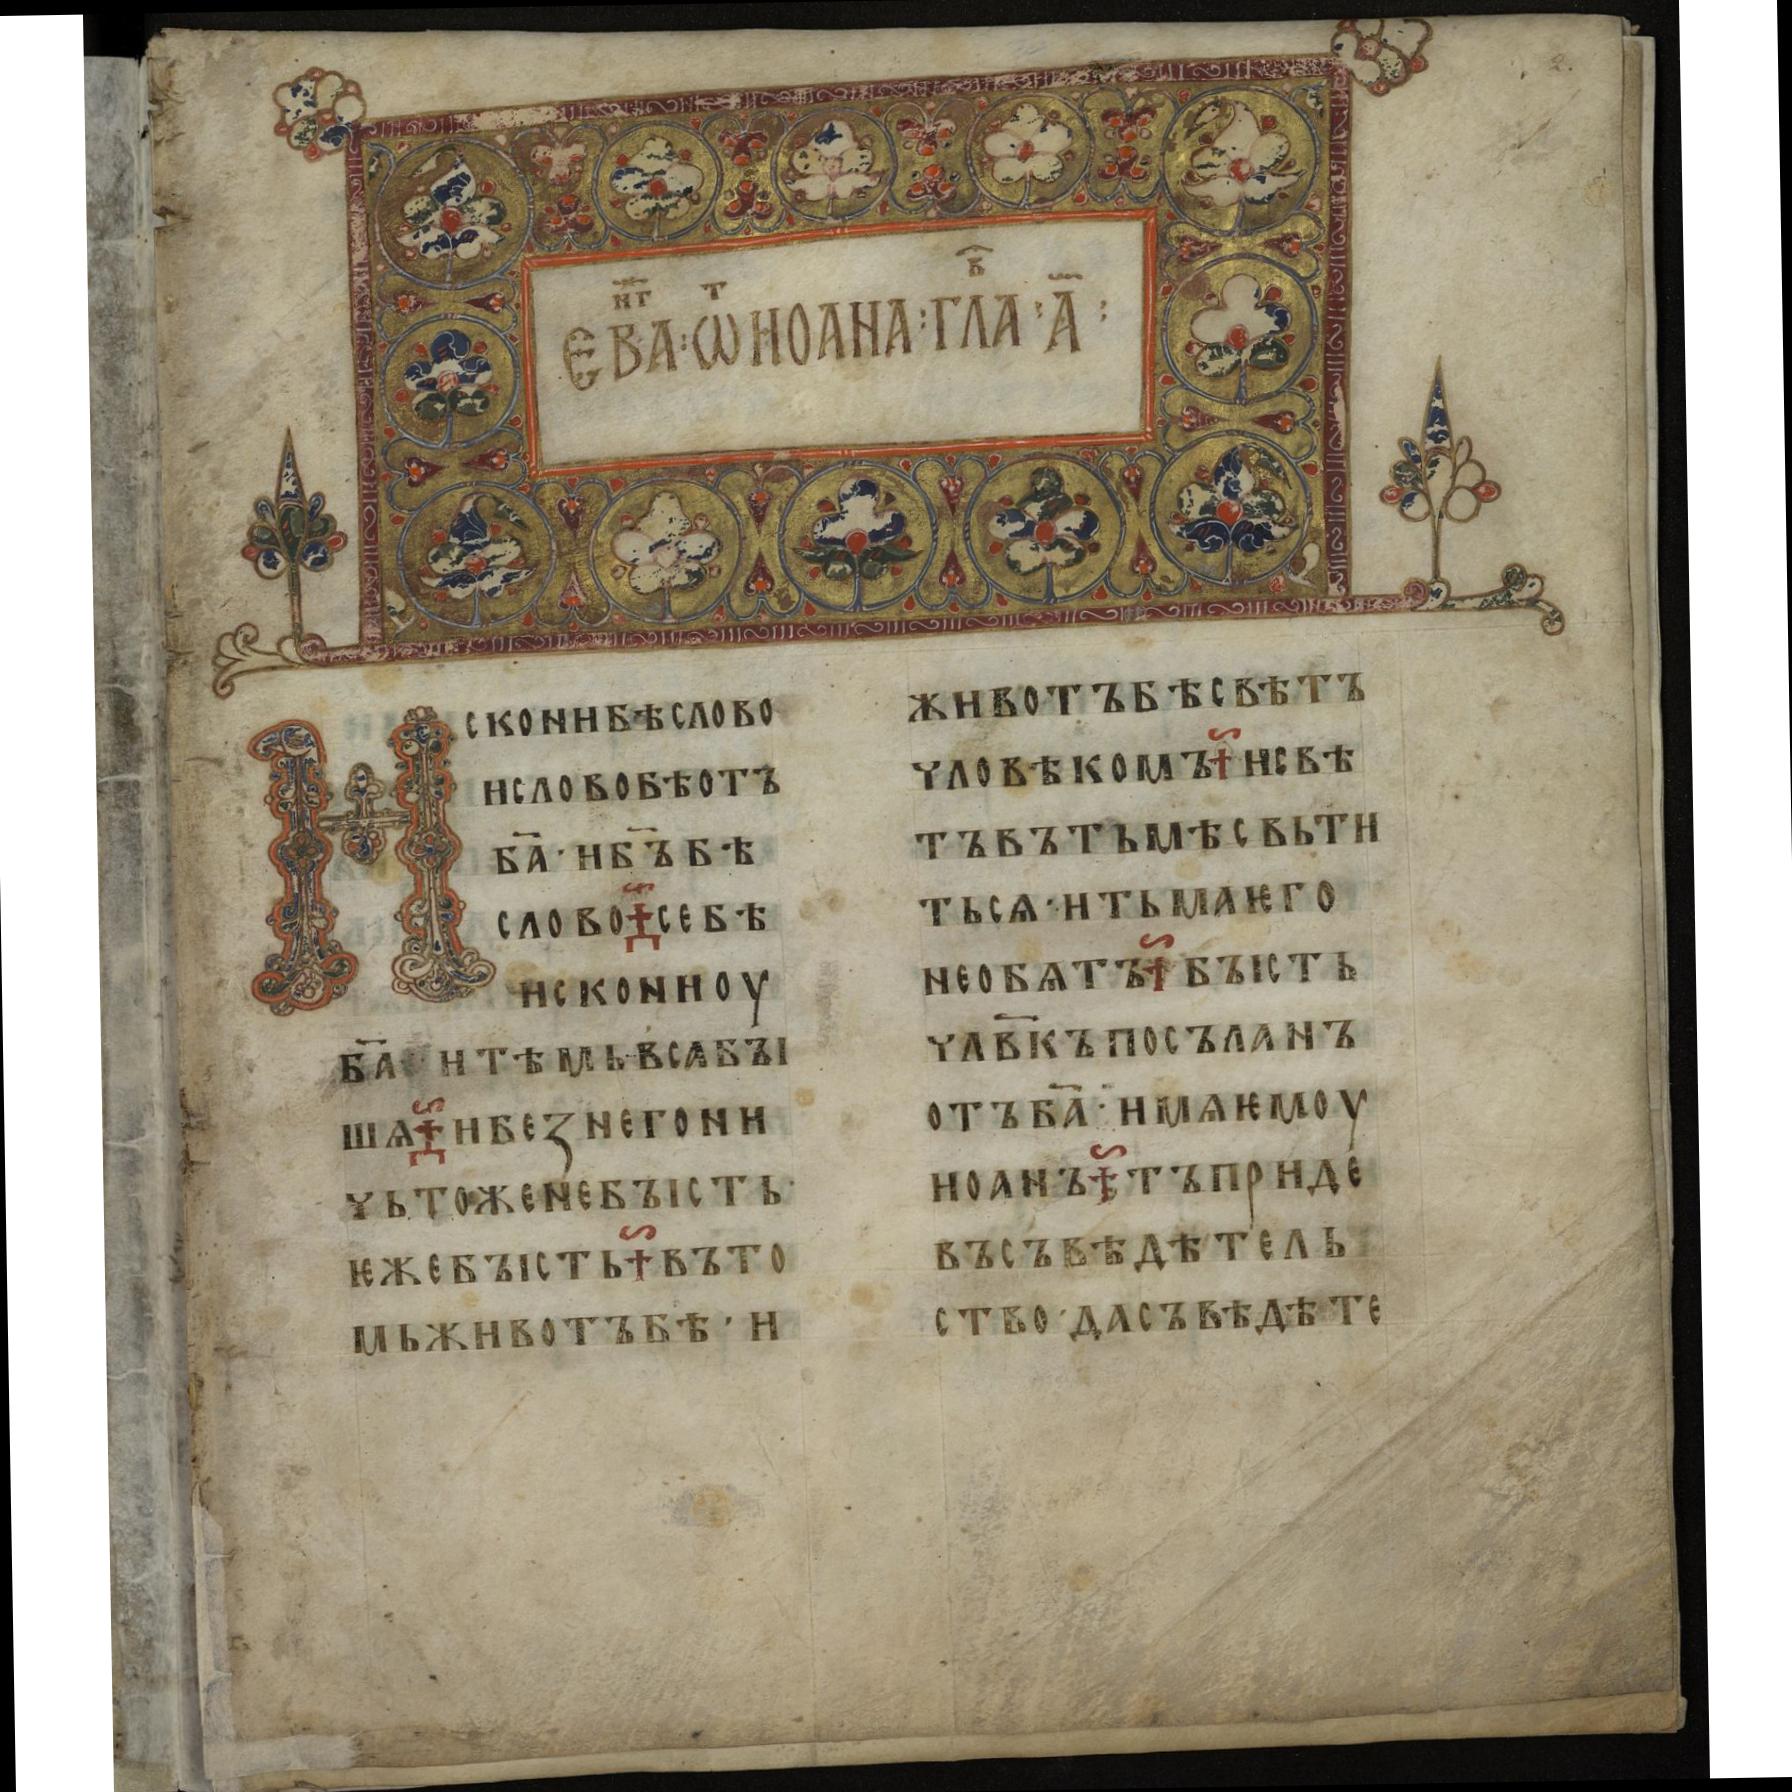 ЕВА҃нг:Ѿт НОАНА:ГЛАв҃·А҃:
Искони бѣ слово
и слово бѣ отъ
ба҃·и бъ҃ бѣ
слово се бѣ
искони оу
ба҃ и тѣмь вся бꙑ
шѧ и без него ни
чьтоже не бꙑсть·
ѥже бꙑсть въ то
мь животъ бѣ·и
животъ бѣ свѣтъ
чловѣкомъ и свѣ
тъ въ тьмѣ свьти
тьсѧ·и тьма ѥго
не обѧтъ бꙑсть
члв҃къ посъланъ
отъ ба҃·имѧ ѥмоу
иоанъ тъ приде
въ съвѣдѣтель
ство·да съвѣдѣте